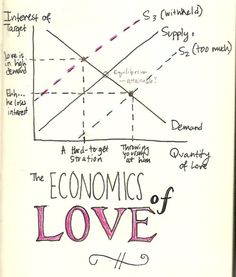 Interest of
Target
S3 (withheld)
Supply,
S2 (too much)
Love is
in high
demand
Equilibrium
attainable?
Ehh...he
loses
interest
Demand
A Hard-to-get
Stration
Throwing
yourself
at him
Quantity
of Love
The ECONOMICS
of
LOVE